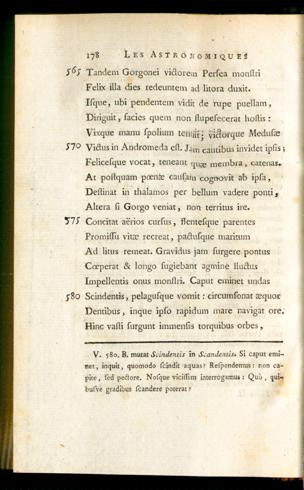 178 LES ASTRONOMIQUES
565 Tandem Gorgonei victorem Persea monstri
Felix illa dies redeuntem ad litora duxit.
Isque, ubi pendentem vidit de rupe puellam,
Diriguit, facies quem non stupefecerat hostis :
Vixque manu spolium tenuit; victorque Medusæ
570 Victus in Andromeda est. Jam cautibus invidet ipsis;
Felicesque vocat, teneant quæ membra, catenas.
At postquam pœnæ causam cognovit ab ipsa,
Destinat in thalamos per bellum vadere ponti,
Altera si Gorgo veniat, non territus ire.
575 Concitat aërios cursus, flentesque parentes
Promissu vitæ recreat, pactusque maritum
Ad litus remeat. Gravidus jam surgere pontus
Cœperat & longo fugiebant agmine fluctus
Impellentis onus monstri. Caput eminet undas
580 Scindentis, pelagusque vomit : circumsonat æquor
Dentibus, inque ipso rapidum mare navigat ore.
Hinc vasti surgunt immensis torquibus orbes,
V. 580. B. mutat Scindentis in Scandentis. Si caput emi-
net, inquit, quomodo scindit aquas? Respondemus : non ca-
pite, sed pectore. Nosque vicissim interrogamus : Quò, qui-
busve gradibus scandere poterat?